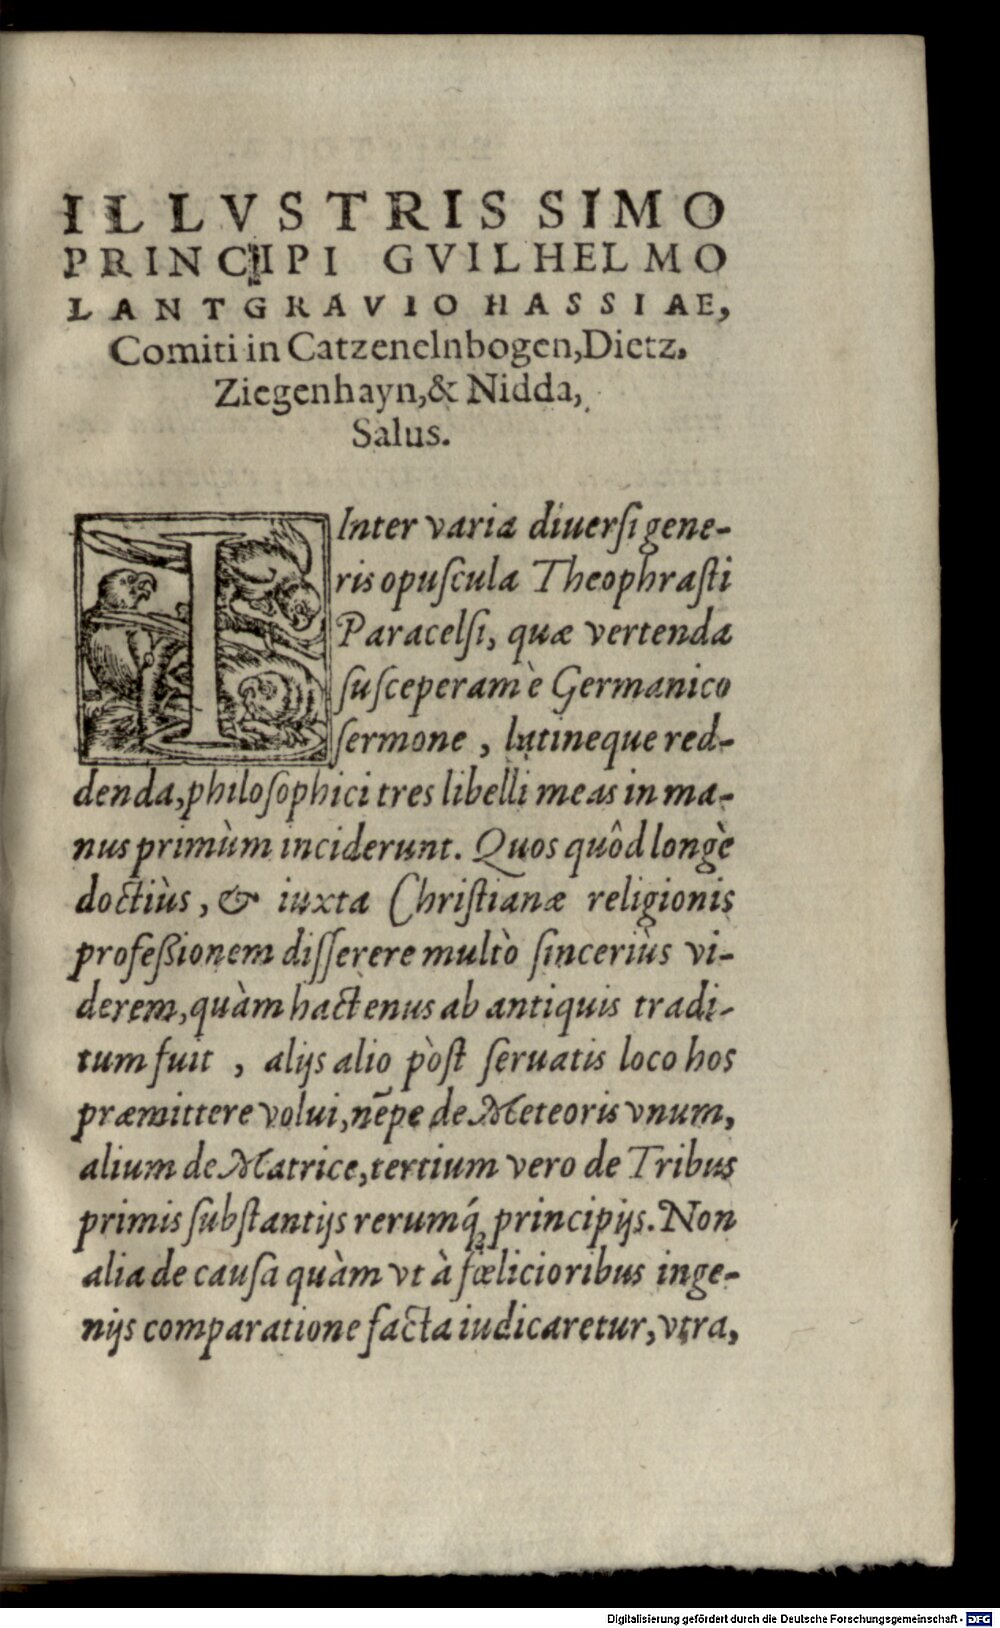 ILLVSTRISSIMO
PRINCIPI GVILHELMO
LANTGRAVIO HASSIAE,
Comiti in Catzenelnbogen, Dietz.
Ziegenhayn, & Nidda,
Salus.
Inter varia diuersi gene-
ris opuscula Theophrasti
Paracelsi, quæ vertenda
susceperam è Germanico
sermone, latineque red-
denda, philosophici tres libelli meas in ma-
nus primùm inciderunt. Quos quôd longè
doctiùs, & iuxta Christianæ religionis
profeßionem disserere multò sinceriùs vi-
derem, quàm hactenus ab antiquis tradi-
tum fuit, alijs alio pòst seruatis loco hos
præmittere volui, nẽpe de Meteoris vnum,
alium de Matrice, tertium vero de Tribus
primis substantijs rerumq́; principijs. Non
alia de causa quàm vt à fœlicioribus inge-
nijs comparatione facta iudicaretur, vtra,
Digitalisierung gefördert durch die Deutsche Forschungsgemeinschaft - DFG
T